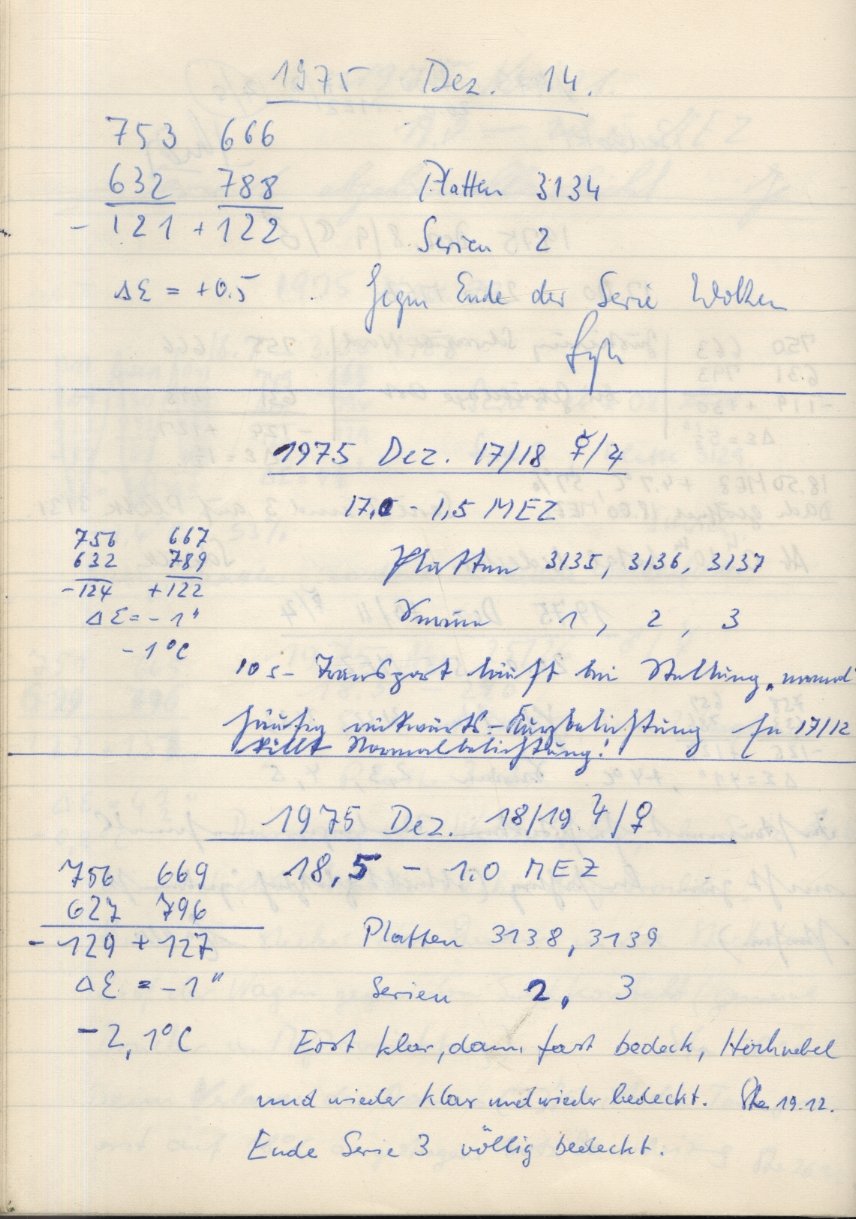 1975 Dez. 14.
753 666
632 788 Platten 3134
- 121 + 122 Serien 2
ΔΣ = +0.5 Gegen Ende der Serie Wolken
1975 Dez. 17/18 ☿/♃
17,0 - 1,5 MEZ
756 667
632 789 Platten 3135, 3136, 3137
-124 +122
ΔΣ = -1" Serien 1, 2, 3
-1°C
10 s - Transport läuft bei Stellung „normal"
häufig rückwärts - Kurzbelichtung 17/12
statt Normalbelichtung!
1975 Dez. 18/19. ♃/♀
756 669 18,5 - 1.0 MEZ
627 796
- 129 + 127 Platten 3138, 3139
ΔΣ = -1" Serien 2, 3
-2,1°C Erst klar, dann fast bedeck, Hochnebel
und wieder klar und wieder bedeckt. 19.12.
Ende Serie 3 völlig bedeckt.